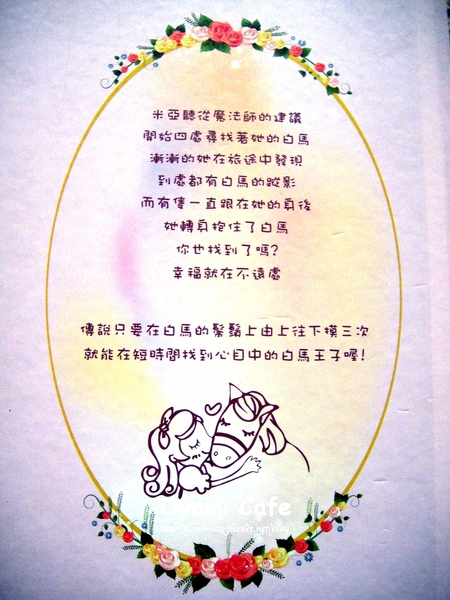 米亞聽從魔法師的建議
開始四處尋找著她的白馬
漸漸的她在旅途中發現
到處都有白馬的蹤影
而有隻一直跟在她的身後
她轉身抱住了白馬
你也找到了嗎?
幸福就在不遠處
傳說只要在白馬的鬃鬚上由上往下摸三次
就能在短時間找到心目中的白馬王子喔!
Cafe